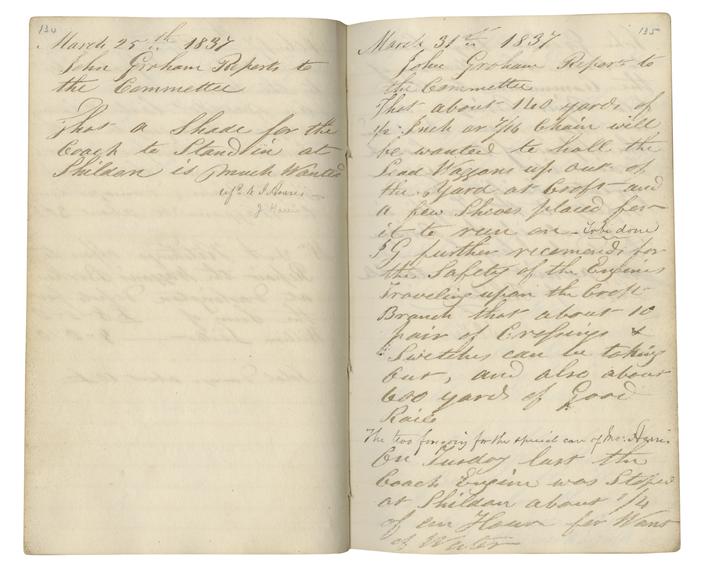 March 25th 1837
John Graham Reports to
the Committee
That a Shade for the
Coach to Stand in at
Shildan is much Wanted
J Harris
135
March 31st 1837
John Graham Reports to
the Committee
That about 140 yards of
1/2 Inch or 7/16 Chain will
be wanted to hall the
Lead Waggans up out of
the Yard at Croft and
a few Sheves placed for
it to run on To be done
J G further recomends for
the Safety of the Engines
Traveling upon the Croft
Branch that about 10
pair of Crossings &
Switches can be taking
Out, and also about
600 yards of Good
Rails
The two forgoing for the special care of Mr Harris
On Tusday last the
Coach Engine was Stoped
at Shildan about 1/4
of an Hour for Want
of Water